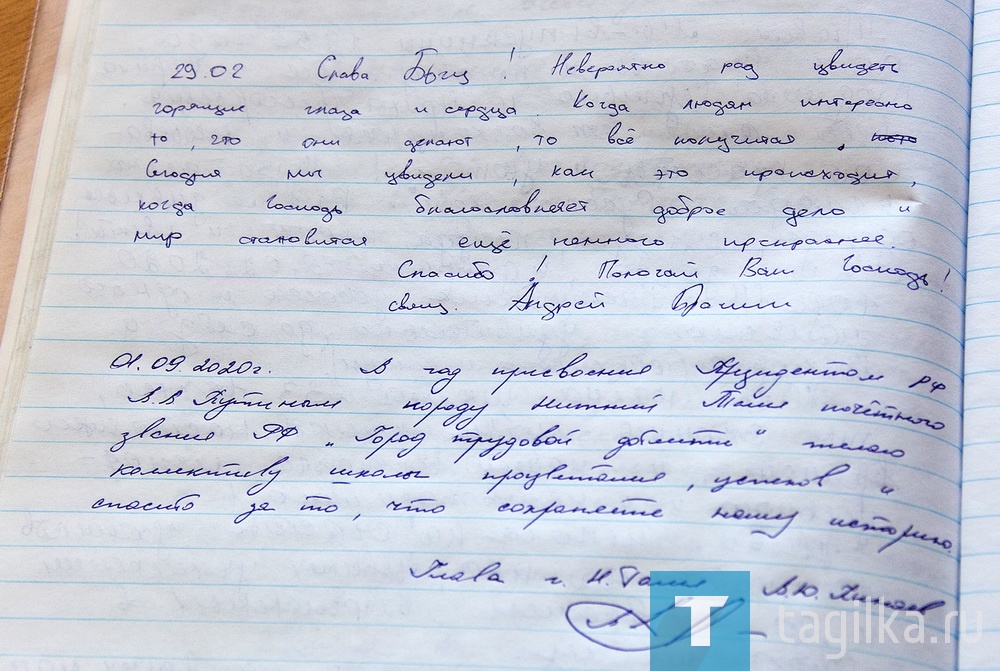 29.02 Слава Богу! Невероятно рад увидеть
горящие глаза и сердца Когда людям интересно
то, что они делают, то всё получится,
Сегодня мы увидели, как это происходит,
когда Господь благословляет доброе дело и
мир становится ещё немного прекраснее.
Спасибо! Помогай Вам Господь!
свящ. Андрей
01.09.2020г. В год присвоения Президентом РФ
В.В Путиным городу Нижний Тагил почётного
звания РФ „Город трудовой доблести“ желаю
коллективу школы процветания, успехов и
спасибо за то, что сохраняете нашу историю.
Глава г. Н.Тагил В.Ю. Пинаев
T tagilka.ru